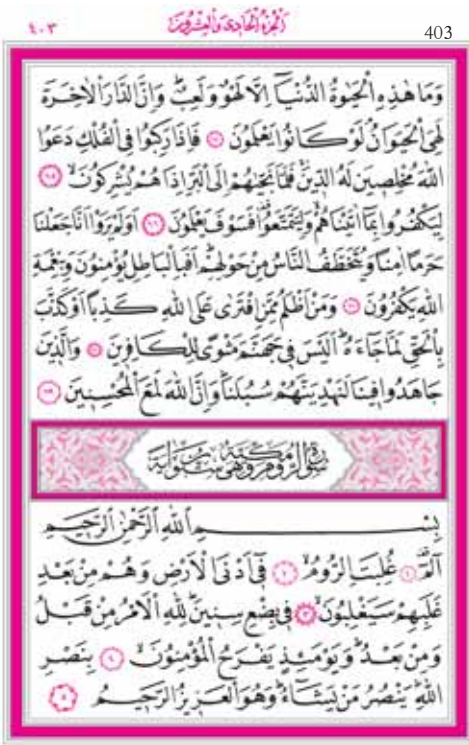 الجزء الحادي والعشرون
٤٠٣
403
وَمَا هٰذِهِ الْحَيٰوةُ الدُّنْيَٓا اِلَّا لَهْوٌ وَلَعِبٌۜ وَاِنَّ الدَّارَ الْاٰخِرَةَ
لَهِيَ الْحَيَوَانُۢ لَوْ كَانُوا يَعْلَمُونَ ﴿٦٤﴾ فَاِذَا رَكِبُوا فِي الْفُلْكِ دَعَوُا
اللّٰهَ مُخْلِصٖينَ لَهُ الدّٖينَۚ فَلَمَّا نَجّٰيهُمْ اِلَى الْبَرِّ اِذَا هُمْ يُشْرِكُونَۙ ﴿٦٥﴾
لِيَكْفُرُوا بِمَٓا اٰتَيْنَاهُمْۙ وَلِيَتَمَتَّعُوا۠ فَسَوْفَ يَعْلَمُونَ ﴿٦٦﴾ اَوَلَمْ يَرَوْا اَنَّا جَعَلْنَا
حَرَمًا اٰمِنًا وَيُتَخَطَّفُ النَّاسُ مِنْ حَوْلِهِمْۜ اَفَبِالْبَاطِلِ يُؤْمِنُونَ وَبِنِعْمَةِ
اللّٰهِ يَكْفُرُونَ ﴿٦٧﴾ وَمَنْ اَظْلَمُ مِمَّنِ افْتَرٰى عَلَى اللّٰهِ كَذِبًا اَوْ كَذَّبَ
بِالْحَقِّ لَمَّا جَٓاءَهُۜ اَلَيْسَ فٖي جَهَنَّمَ مَثْوًى لِلْكَافِرٖينَ ﴿٦٨﴾ وَالَّذٖينَ
جَاهَدُوا فٖينَا لَنَهْدِيَنَّهُمْ سُبُلَنَاۜ وَاِنَّ اللّٰهَ لَمَعَ الْمُحْسِنٖينَ ﴿٦٩﴾
سورة الروم مكية وهي ستون اية
بِسْمِ اللّٰهِ الرَّحْمٰنِ الرَّحٖيمِ
الٓمٓۜ ﴿١﴾ غُلِبَتِ الرُّومُۙ ﴿٢﴾ فٖٓي اَدْنَى الْاَرْضِ وَهُمْ مِنْ بَعْدِ
غَلَبِهِمْ سَيَغْلِبُونَۙ ﴿٣﴾ فٖي بِضْعِ سِنٖينَۜ لِلّٰهِ الْاَمْرُ مِنْ قَبْلُ
وَمِنْ بَعْدُۜ وَيَوْمَئِذٍ يَفْرَحُ الْمُؤْمِنُونَۙ ﴿٤﴾ بِنَصْرِ
اللّٰهِۜ يَنْصُرُ مَنْ يَشَٓاءُۜ وَهُوَ الْعَزٖيزُ الرَّحٖيمُۙ ﴿٥﴾